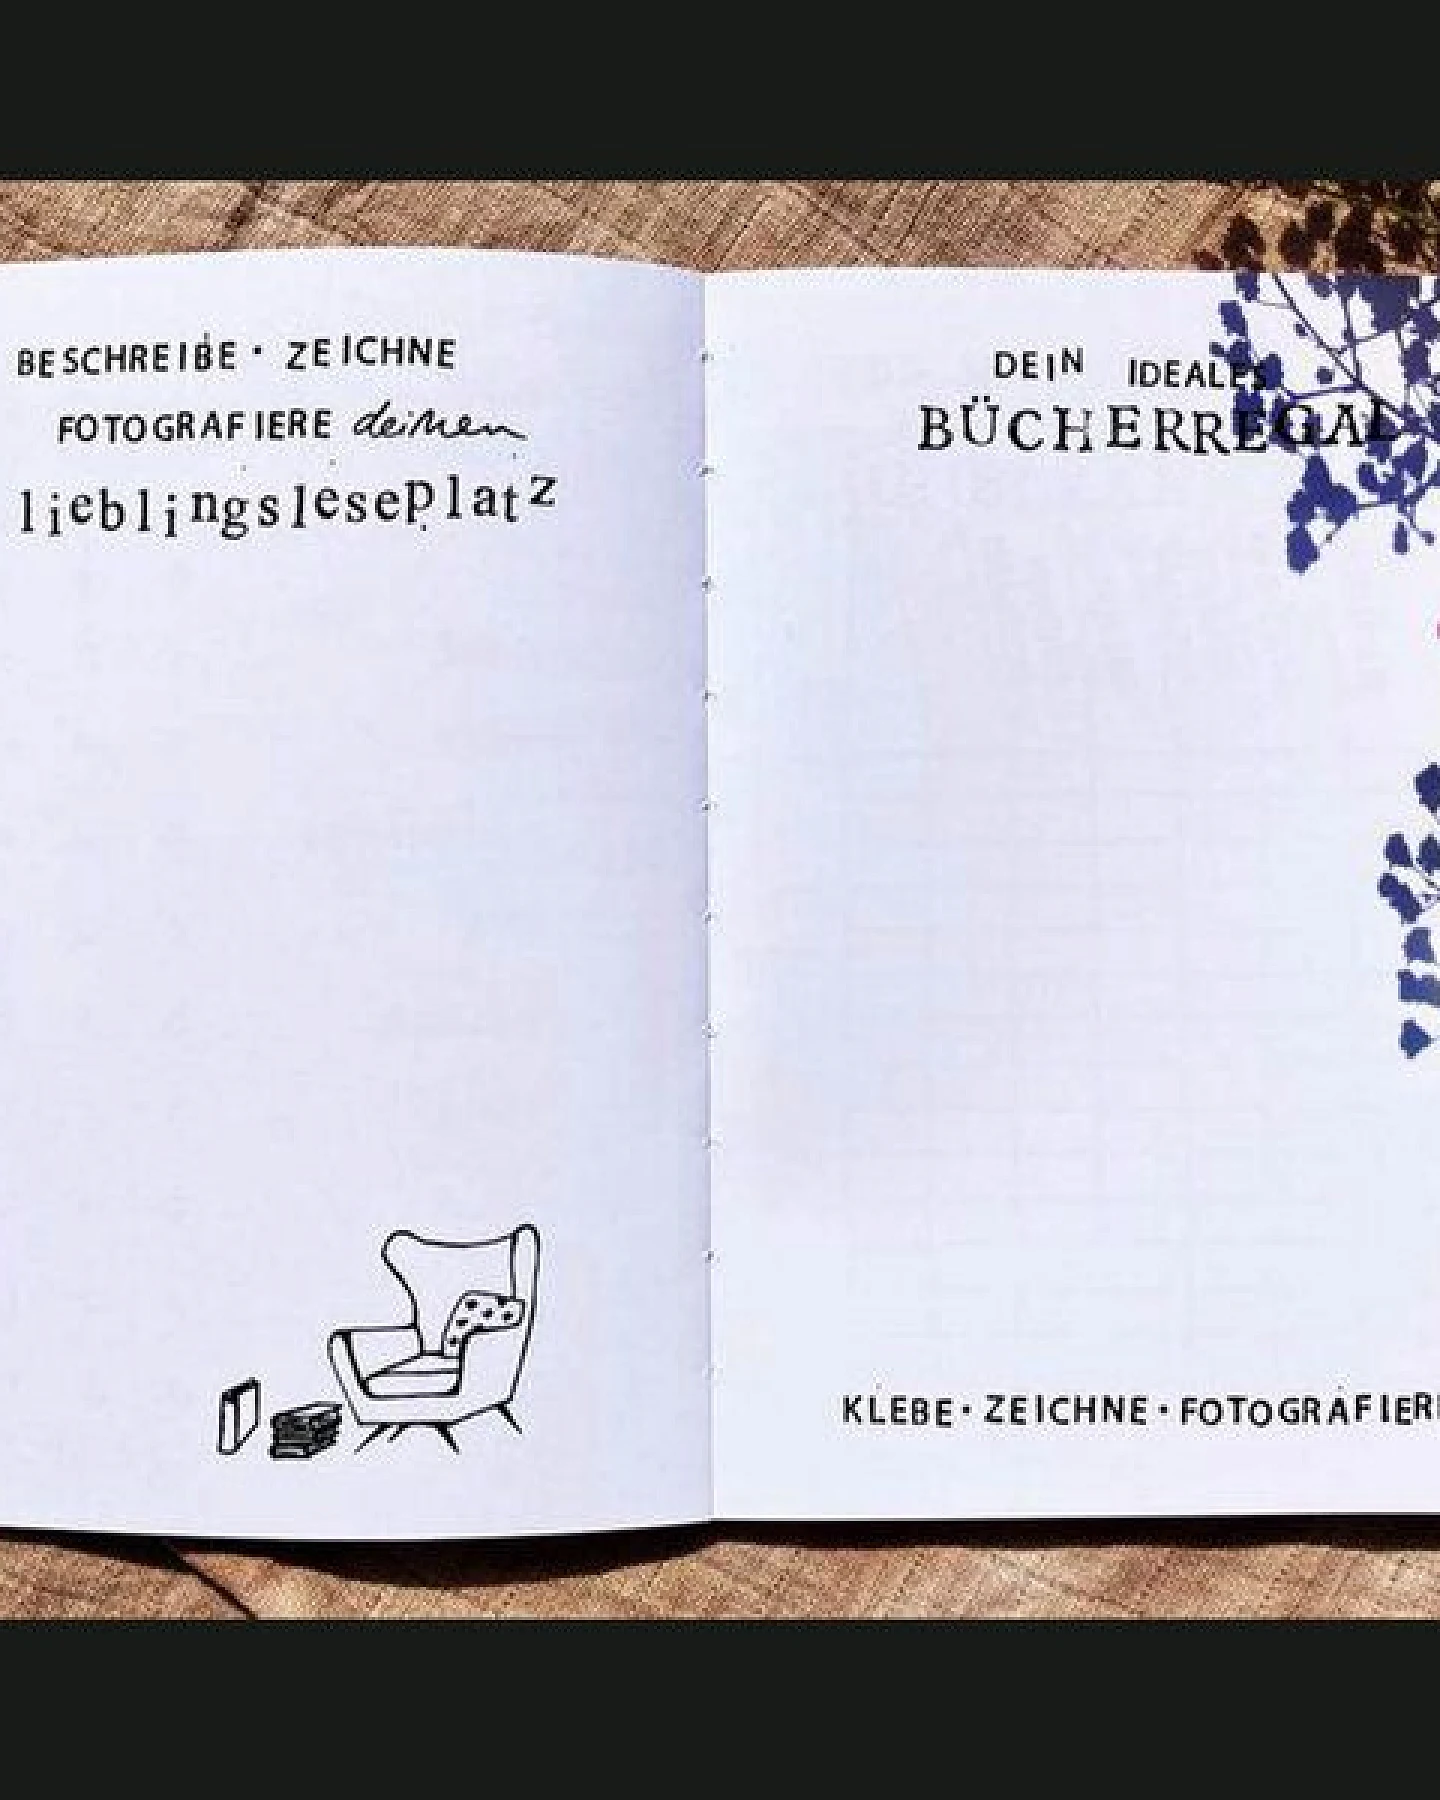 BESCHREIBE · ZEICHNE
FOTOGRAFIERE deinen
lieblingsleseplatz
DEIN IDEALES
BÜCHERREGAL
KLEBE · ZEICHNE · FOTOGRAFIER